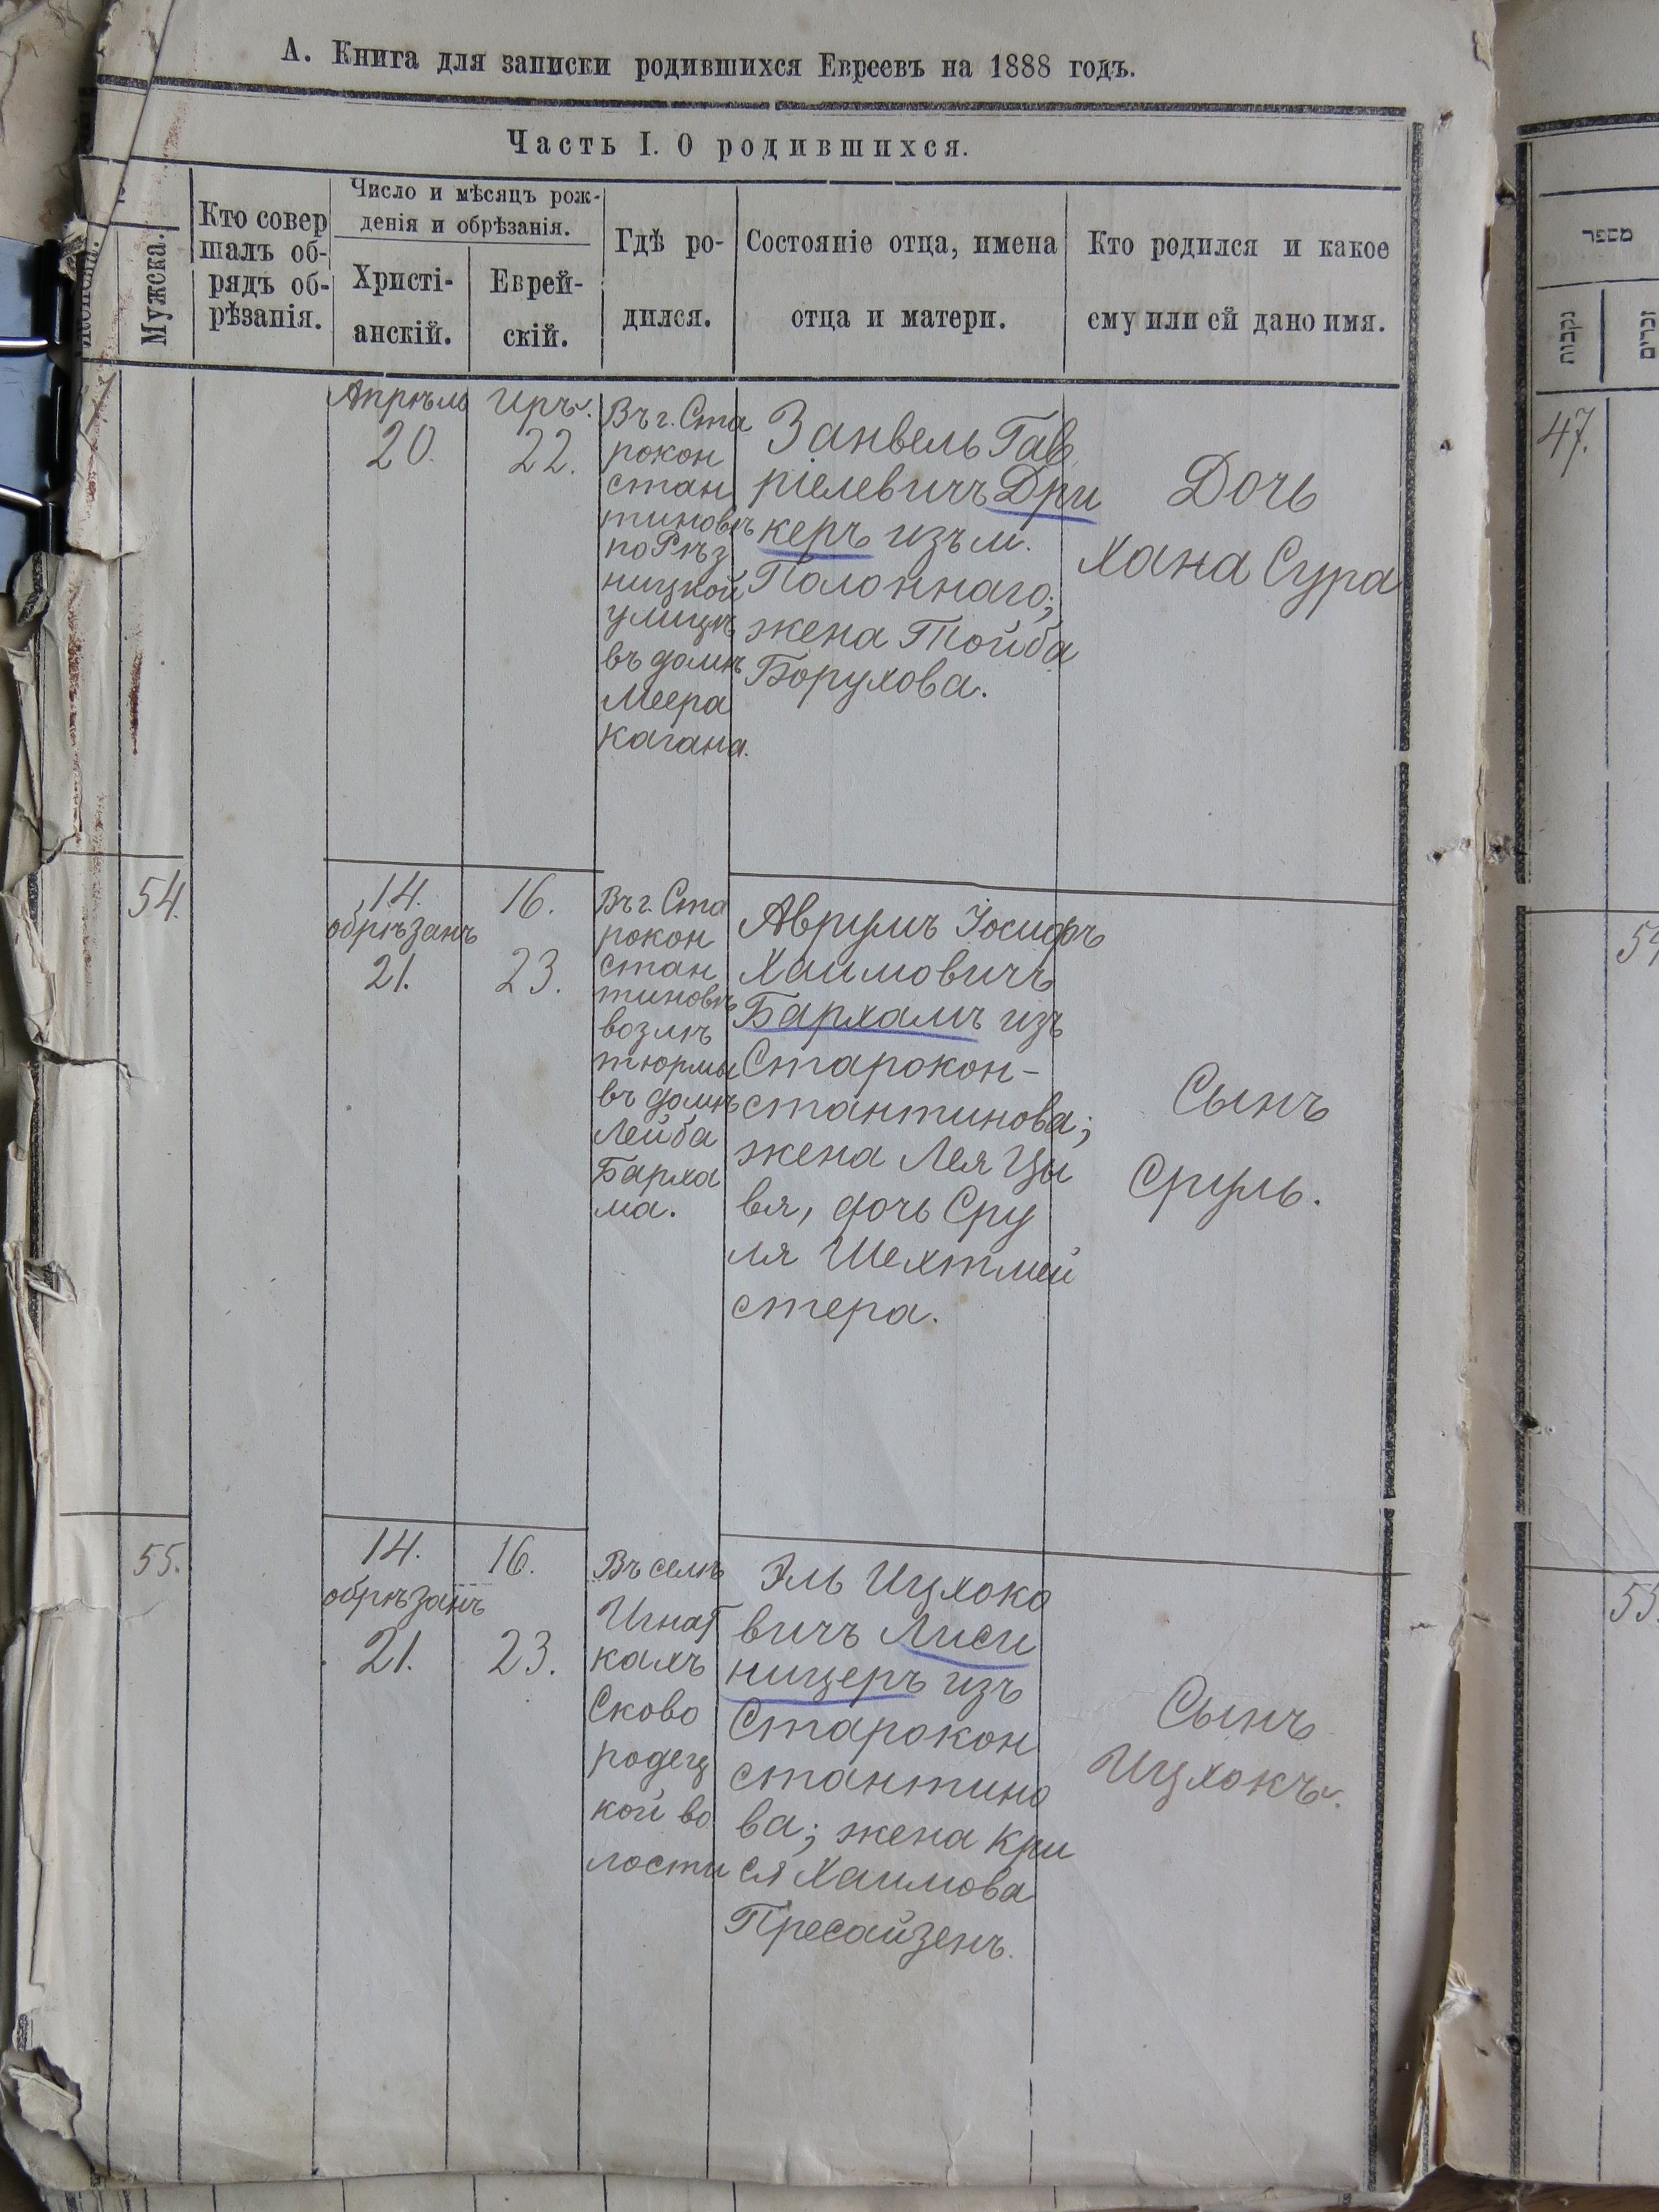 А. Книга для записки родившихся Евреевъ на 1888 годъ.
Часть I. О родившихся.
Женска.
Мужска.
Кто совер
шалъ об-
рядъ об-
рѣзанія.
Число и мѣсяцъ рож-
денія и обрѣзанія.
Христі-
анскій.
Еврей-
скій.
Гдѣ ро-
дился.
Состояніе отца, имена
отца и матери.
Кто родился и какое
ему или ей дано имя.
מספר
נקבות
זכרים
7
Апрѣль
20.
Иръ.
22.
Въ г. Ста
рокон
стан
тиновѣ
по Рѣз
ницкой
улицѣ
въ домѣ
Меера
Кагана.
Занвель Гав
ріелевичъ Дри
керъ изъ м.
Полоннаго;
жена Тойба
Борухова.
Дочь
Хана Сура
47.
54.
14.
обрѣзанъ
21.
16.
23.
Въ г. Ста
рокон
стан
тиновѣ
возлѣ
тюрмы
въ домѣ
Лейба
Барха
ма.
Аврумъ Іосифъ
Хаимовичъ
Бархамъ изъ
Старокон-
стантинова;
жена Лея Цы
вя, дочь Сру
ля Шехтмей
стера.
Сынъ
Сруль.
54
55.
14.
обрѣзанъ
21.
16.
23.
Въ селѣ
Игнат
кахъ
Сково
родец
кой во
лости
Эль Ицхоко
вичъ Лиси
ницеръ изъ
Старокон
стантино
ва; жена Кри
ся Хаимова
Пресайзенъ.
Сынъ
Ицхокъ.
55.